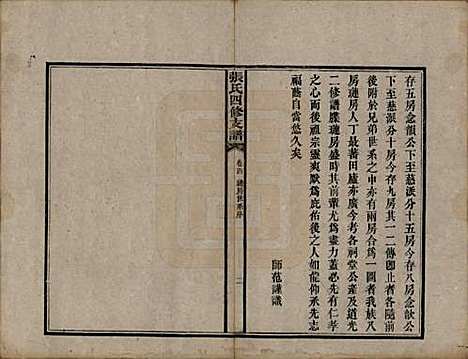 存五房念韻公下至慈派分十五房今存八房念歆公
下至慈派分十房今存九房其一二傳卽止者各隨前
後附於兄弟世系之中亦有兩房合為一圖者我族八
房璉房人丁最蕃田廬亦廣今考各祠堂公產及道光
二修譜牒璉房盛時其前輩尤為盡力蓋必先有仁孝
之心而後祖宗靈爽默為庇佑後之人如能仰承先志
福蔭自當悠久矣
師范謹識
張氏四修支譜
卷四
二